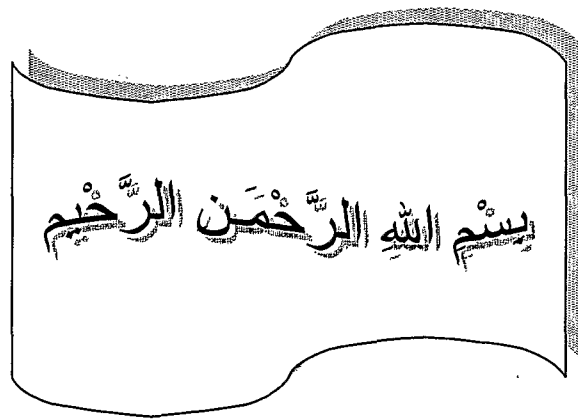 بِسْمِ اللهِ الرَّحْمَـنِ الرَّحْيِمِ